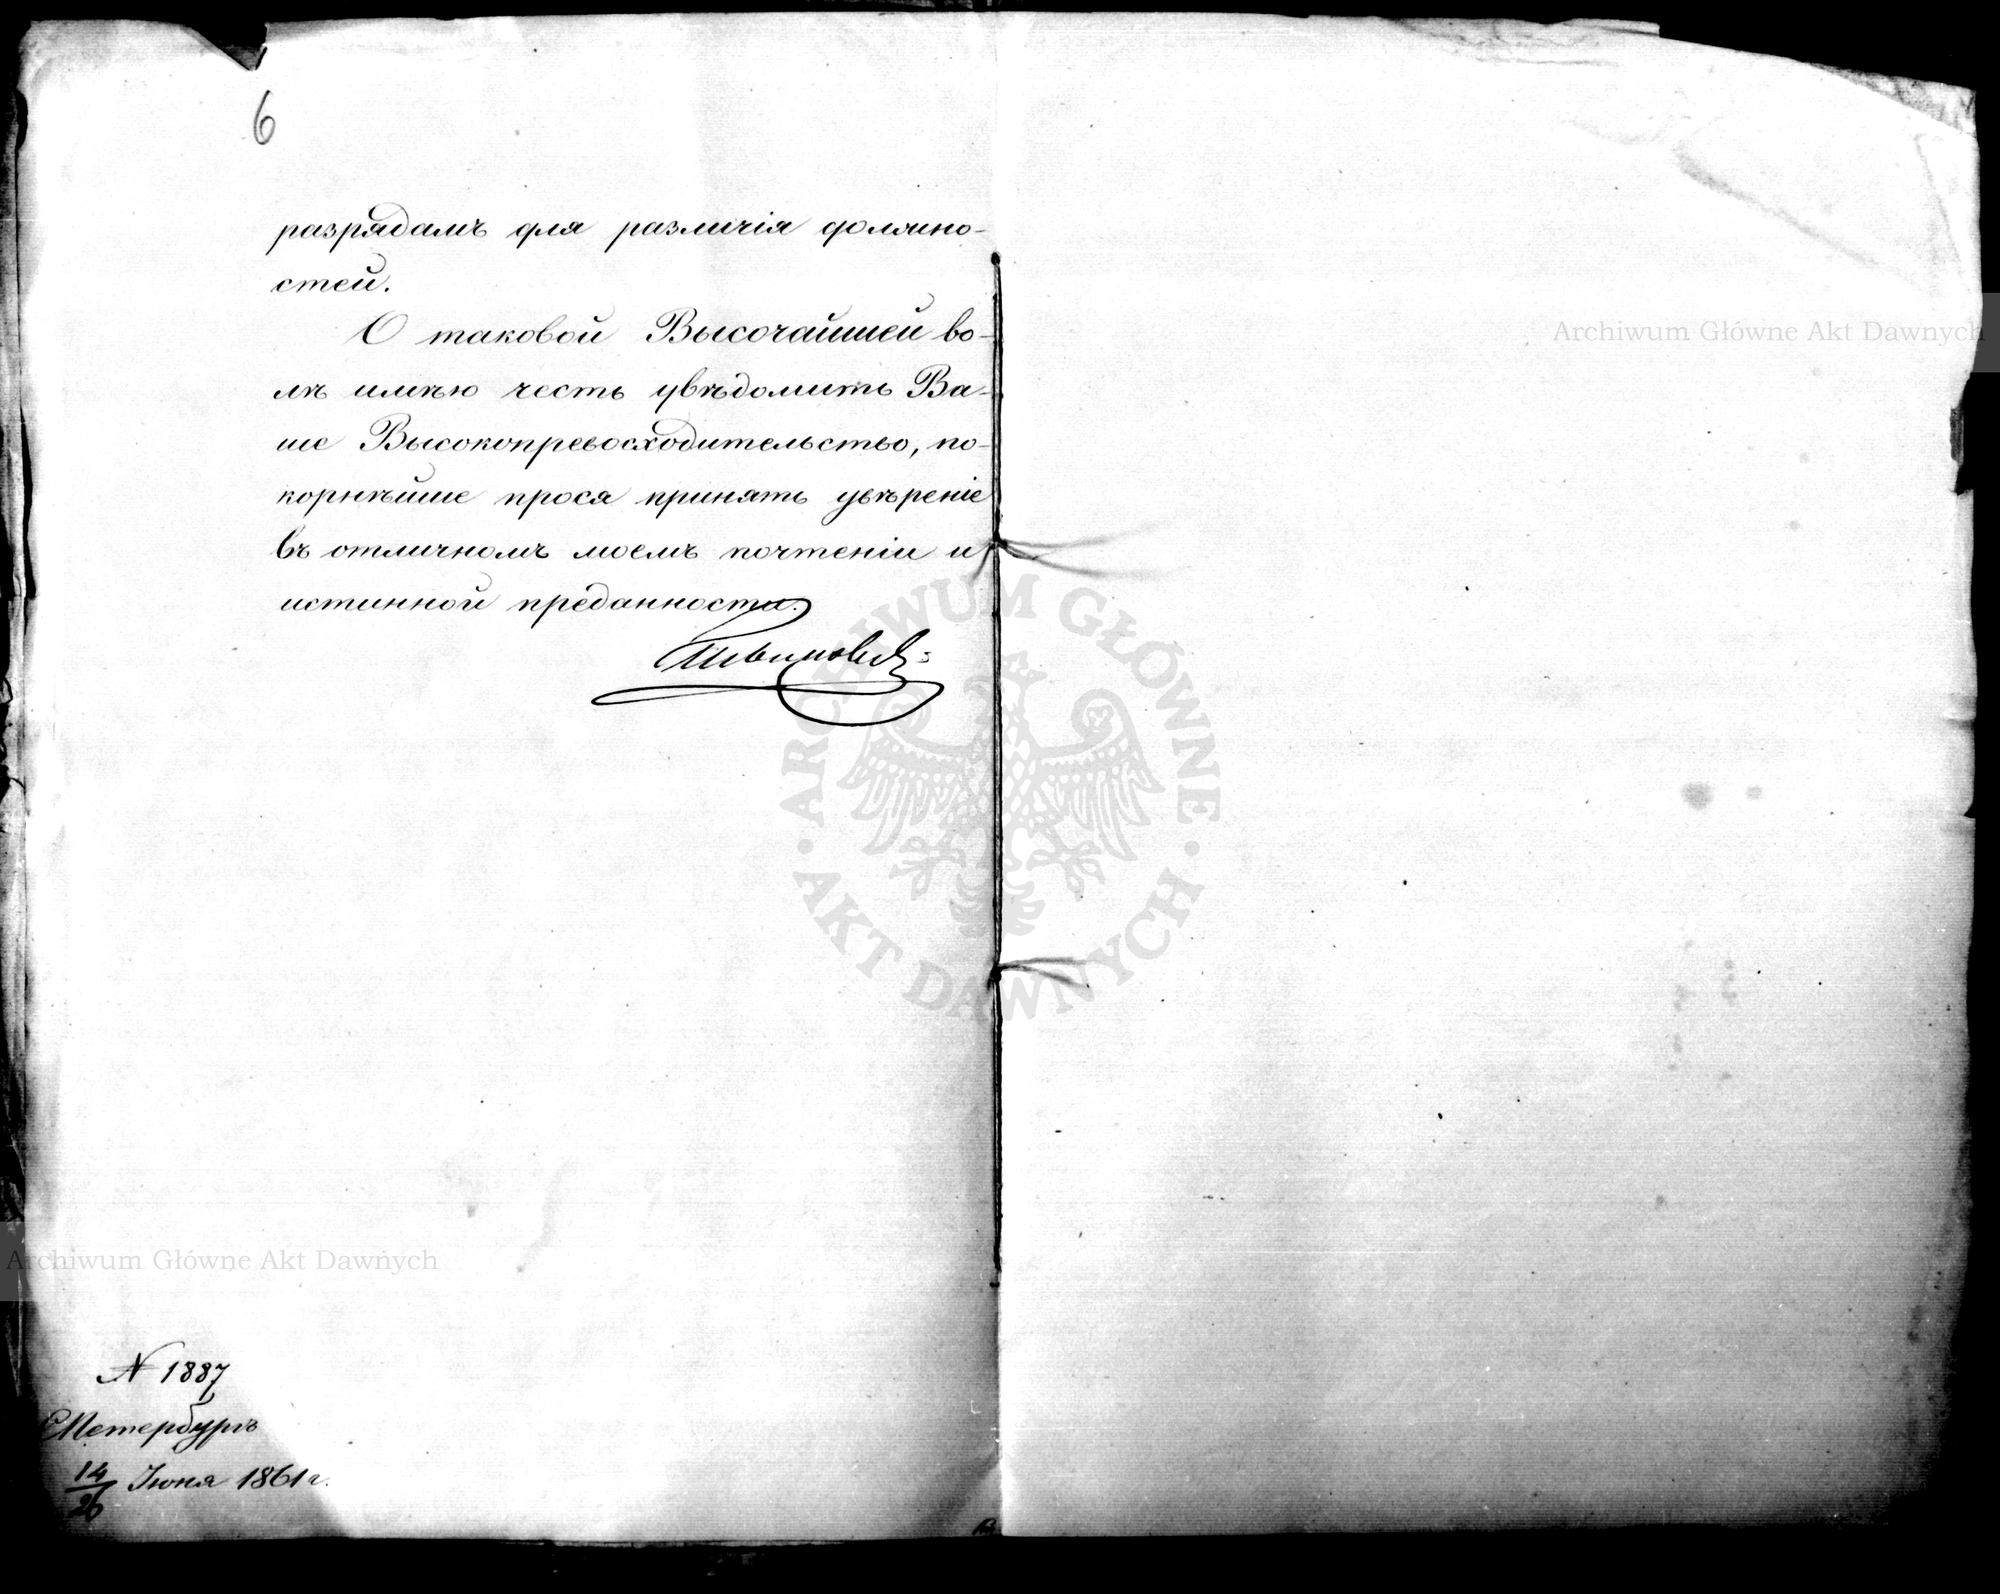 6
разрядамъ для различія должно-
стей.
О таковой Высочайшей во-
лѣ имѣю честь увѣдомить Ва-
ше Высокопревосходительство, по-
корнѣйше прося принять увѣреніе
въ отличномъ моемъ почтеніи и
истинной преданности.
N 1887
СПетербургъ
14/26 Іюня 1861 г.
Archiwum Główne Akt Dawnych
Archiwum Główne Akt Dawnych
ARCHIWUM GŁÓWNE AKT DAWNYCH